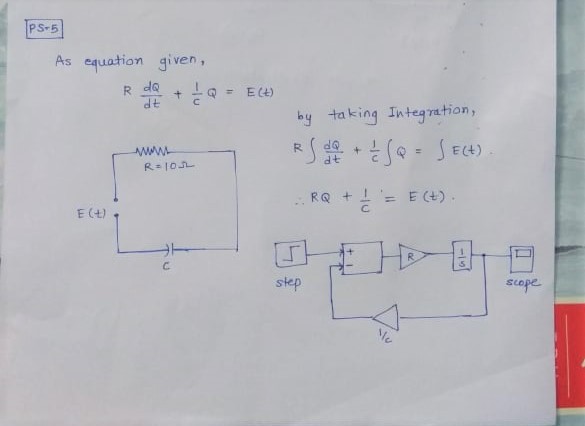 PS-5
As equation given,
R dQ/dt + 1/C Q = E(t)
R=10Ω
E(t)
C
by taking Integration,
R ∫ dQ/dt + 1/C ∫ Q = ∫ E(t).
∴ RQ + 1/C = E(t).
+
−
R
1/s
step
scope
1/C